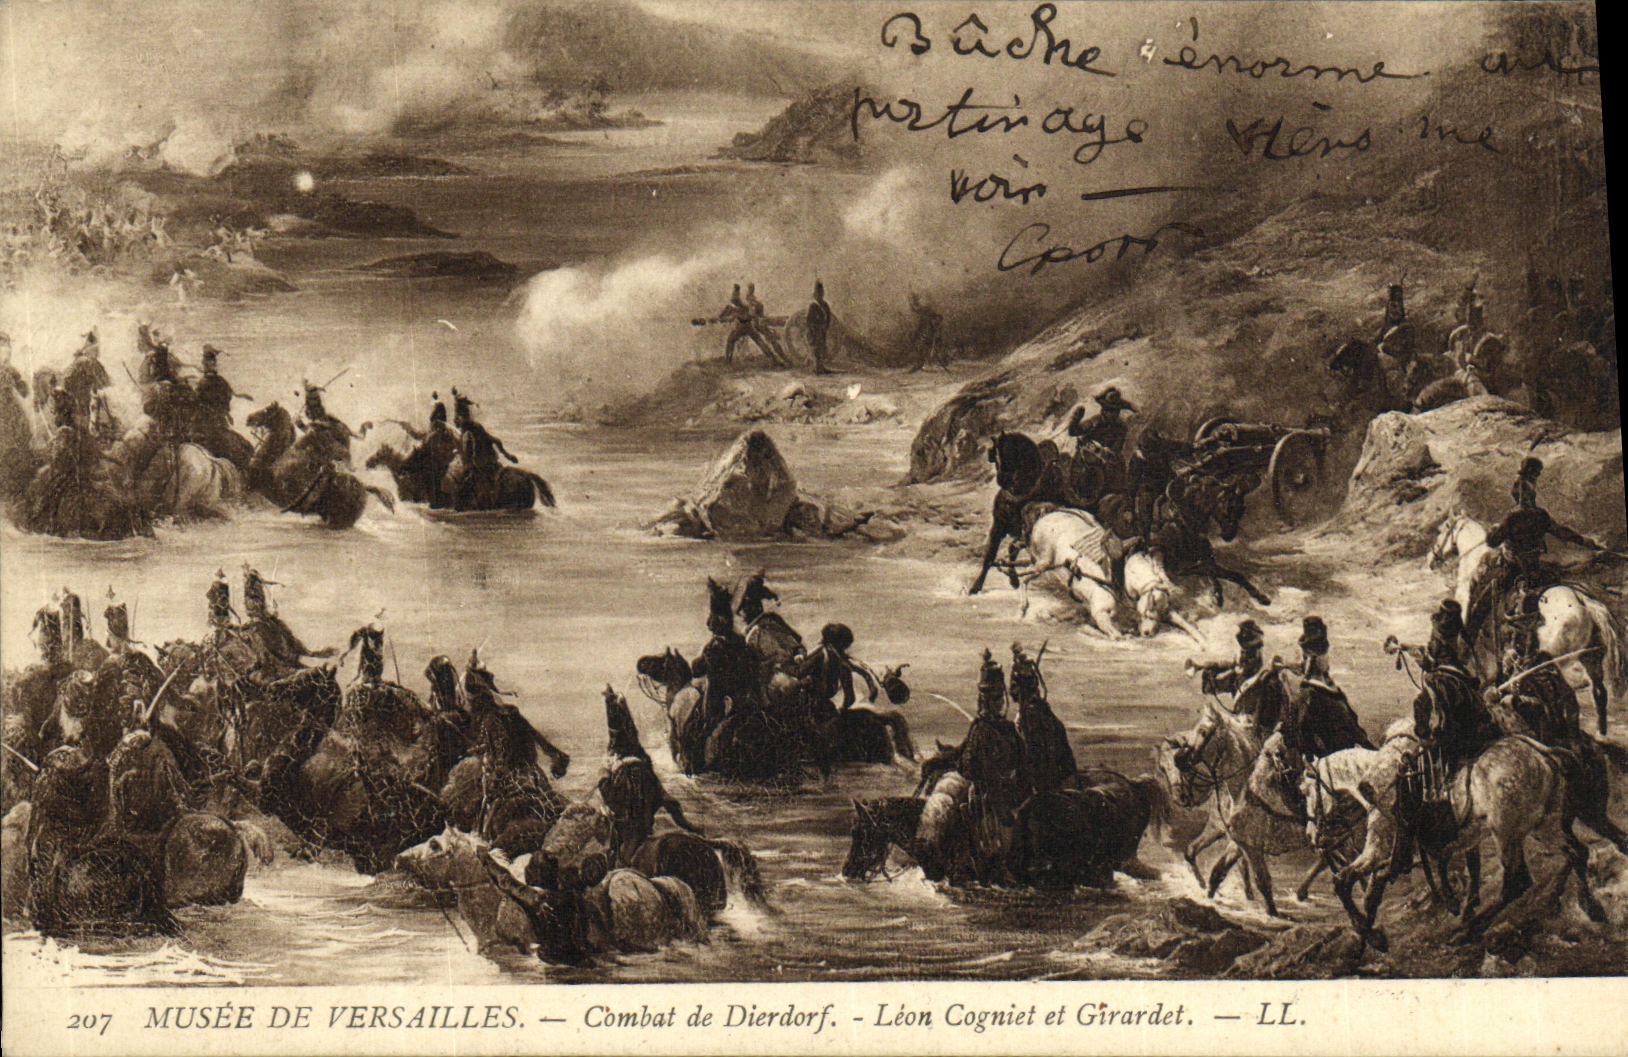 Bûche énorme au
patinage Viens me
voir —
207 MUSÉE DE VERSAILLES. — Combat de Dierdorf. - Léon Cogniet et Girardet. — LL.